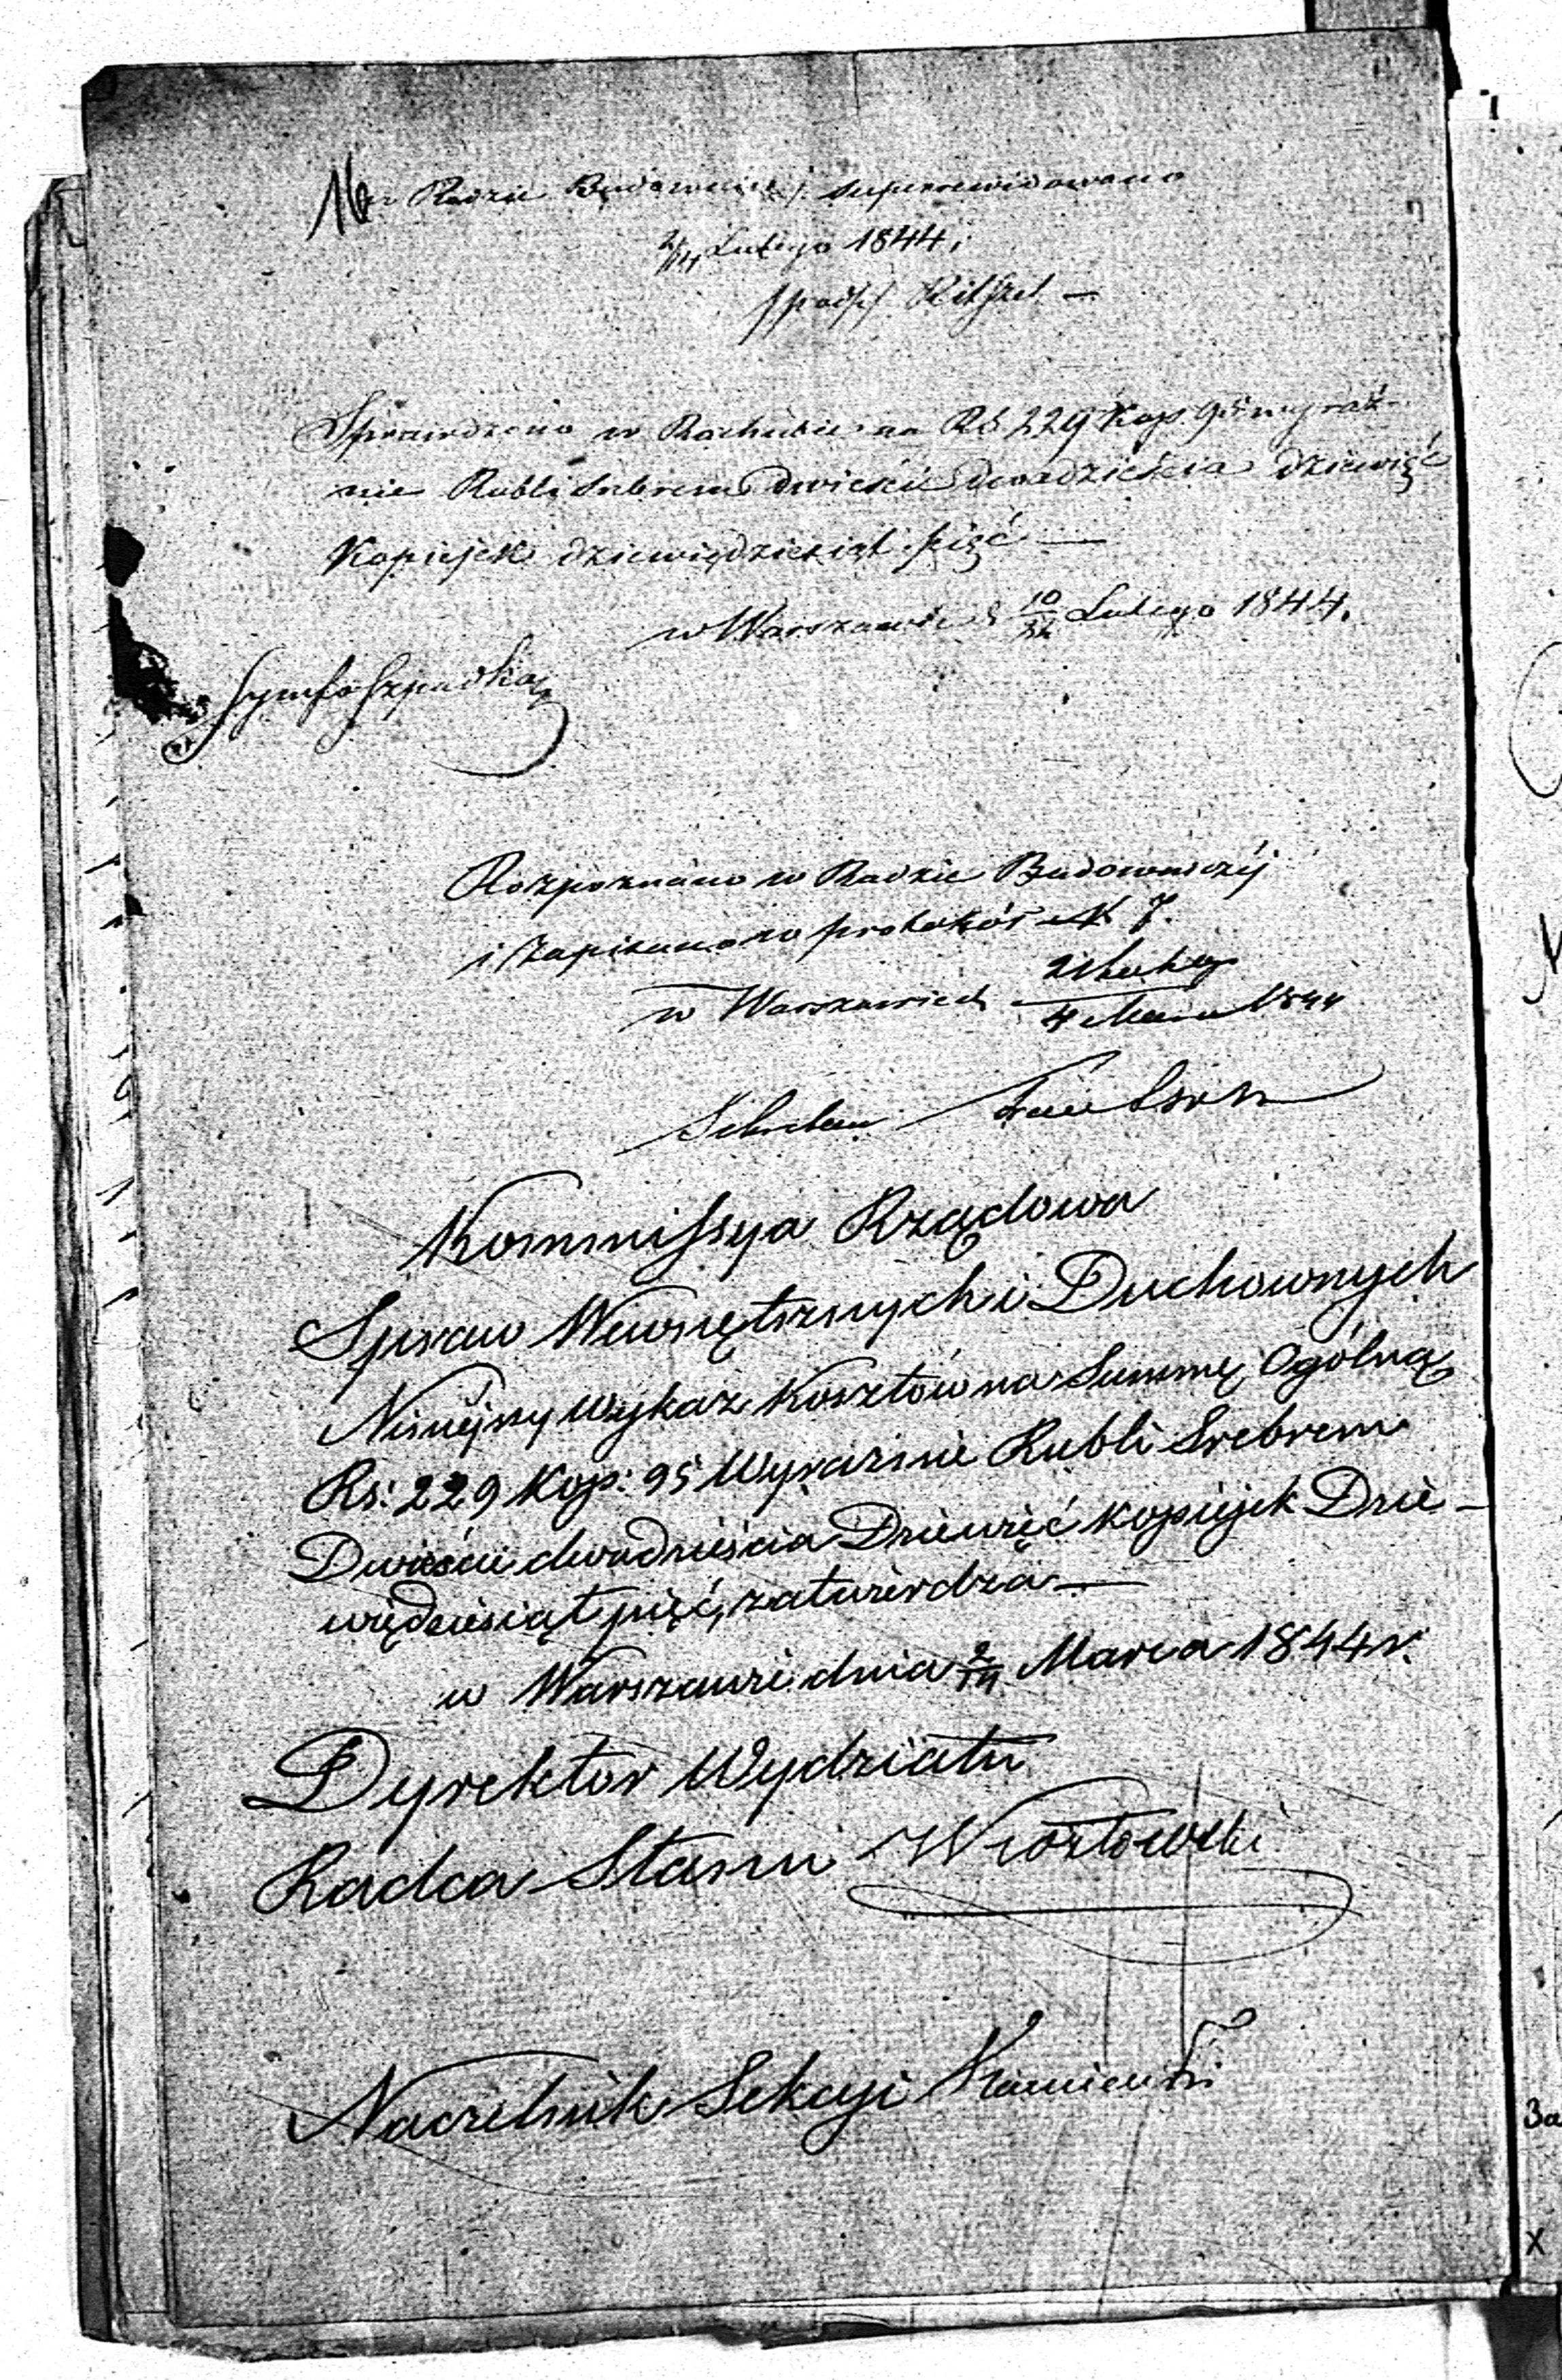 w Radzie Budowniczej superrewidowano
2/14 Lutego 1844
/podp/ Ritschel —
Sprawdzono w Rachubie na RS 229 Kop. 95 wyraź-
nie Rubli srebrem dwieście dwadzieścia dziewięć
Kopiejek dziewięćdziesiąt pięć —
w Warszawie d 10/22 Lutego 1844.
Rozpoznano w Radzie Budowniczéj
i zapisano w protokół N 7.
w Warszawie d 21 Lutego
4 Marca 1844
Sekretarz
Kommissya Rządowa
Spraw Wewnętrznych i Duchownych
Niniejszy wykaz Kosztów na Summę Ogólną
Rs: 229 Kop: 95 Wyraźnie Rubli Srebrem
Dwieście dwadzieścia Dziewięć kopiejek Dzie-
więdziesiąt pięć, zatwierdza —
w Warszawie dnia 2/14 Marca 1844 r.
Dyrektor Wydziału
Radca Stanu
Naczelnik Sekcyi Kamieński